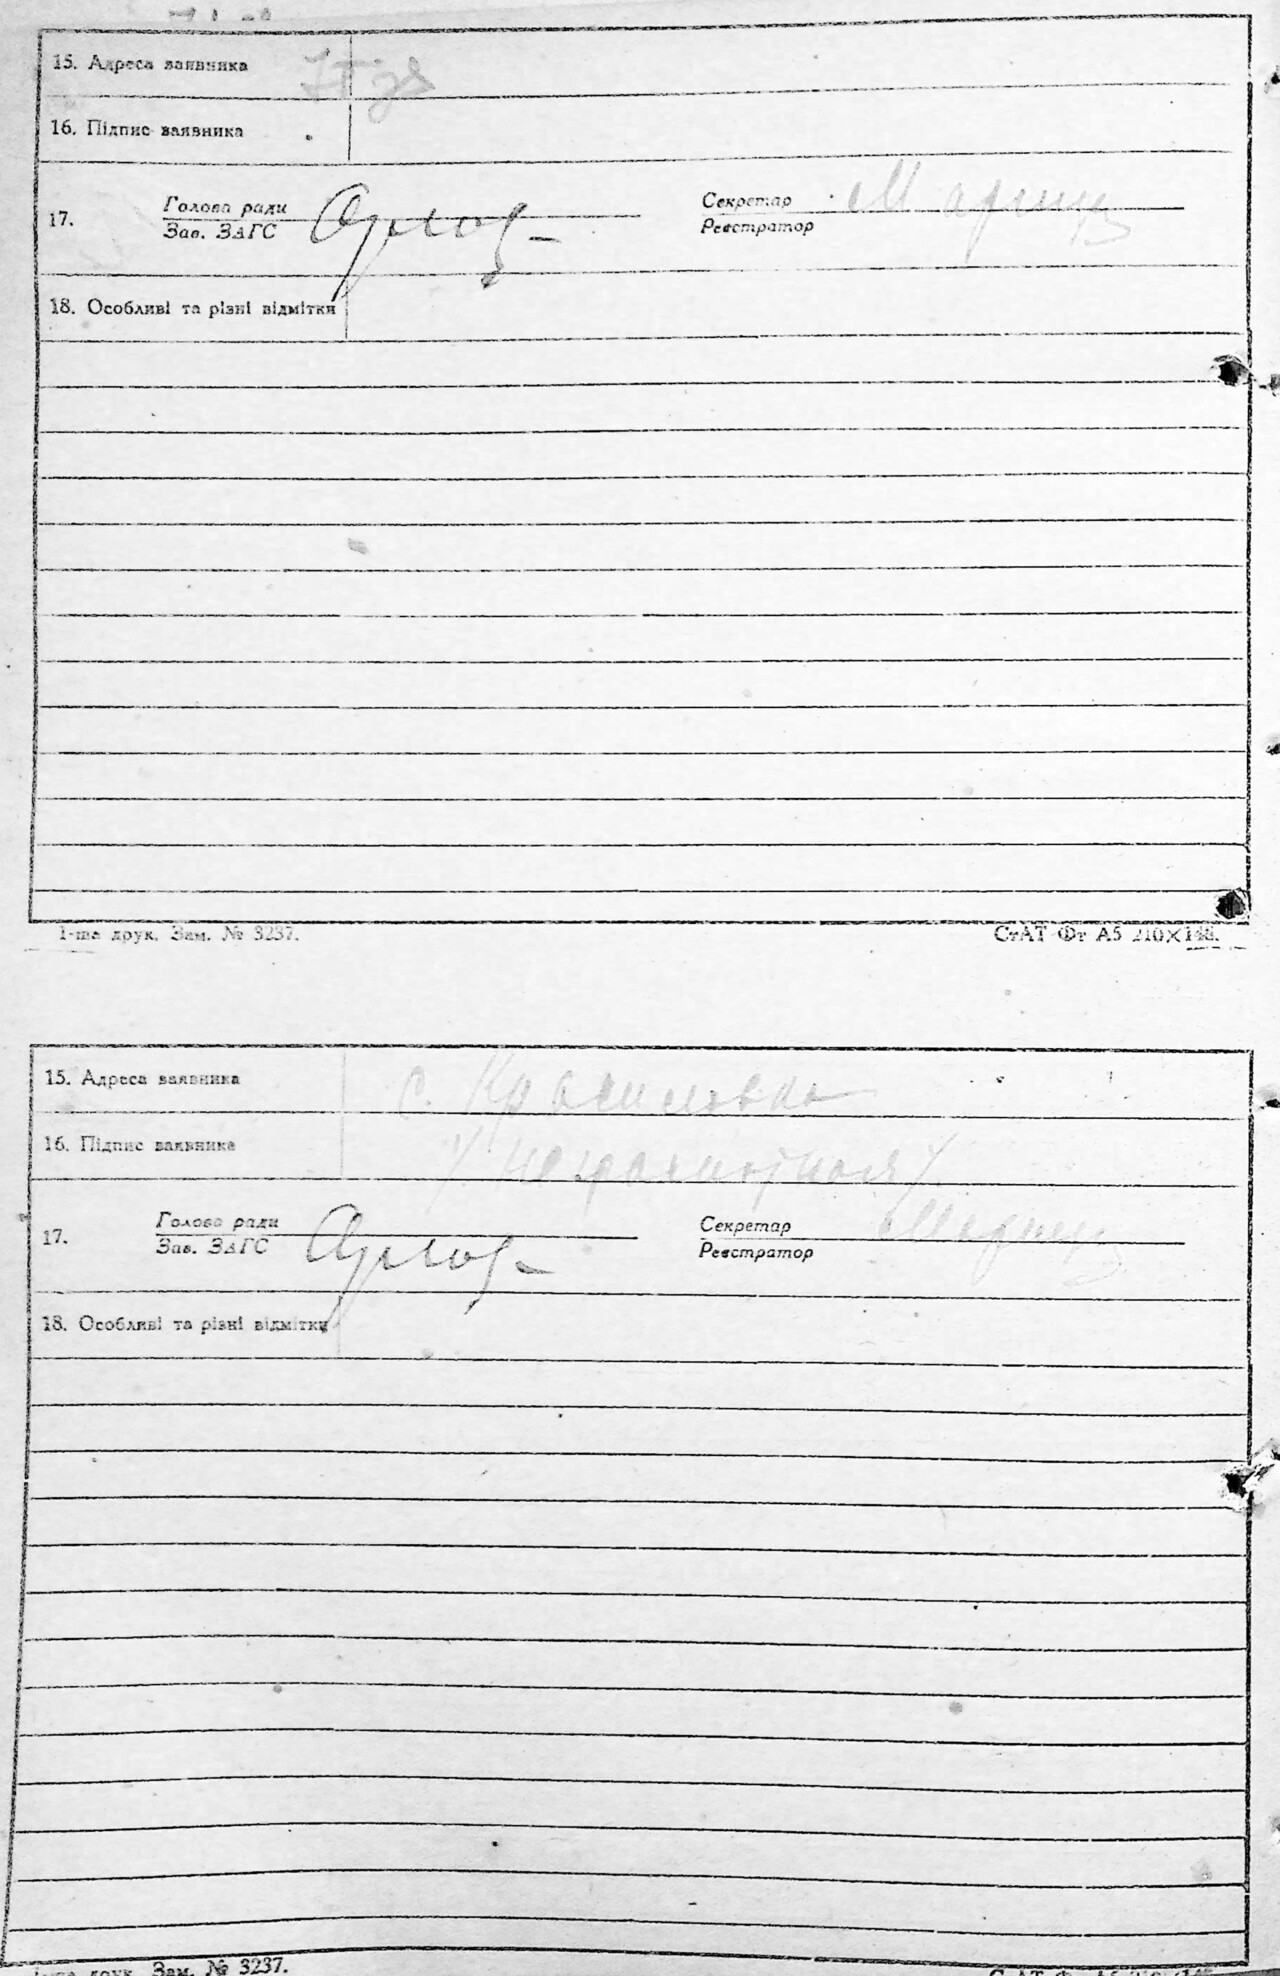 15. Адреса заявника
16. Підпис заявника
17. Голова ради Секретар
Зав. ЗАГС Реєстратор
18. Особливі та різні відмітки
1-ша друк. Зам. № 3237. СтАТ Фт А5 210×148.
15. Адреса заявника с. Красиловка
16. Підпис заявника /неграмотная/
17. Голова ради Секретар
Зав. ЗАГС Реєстратор
18. Особливі та різні відмітки
1-ша друк. Зам. № 3237.